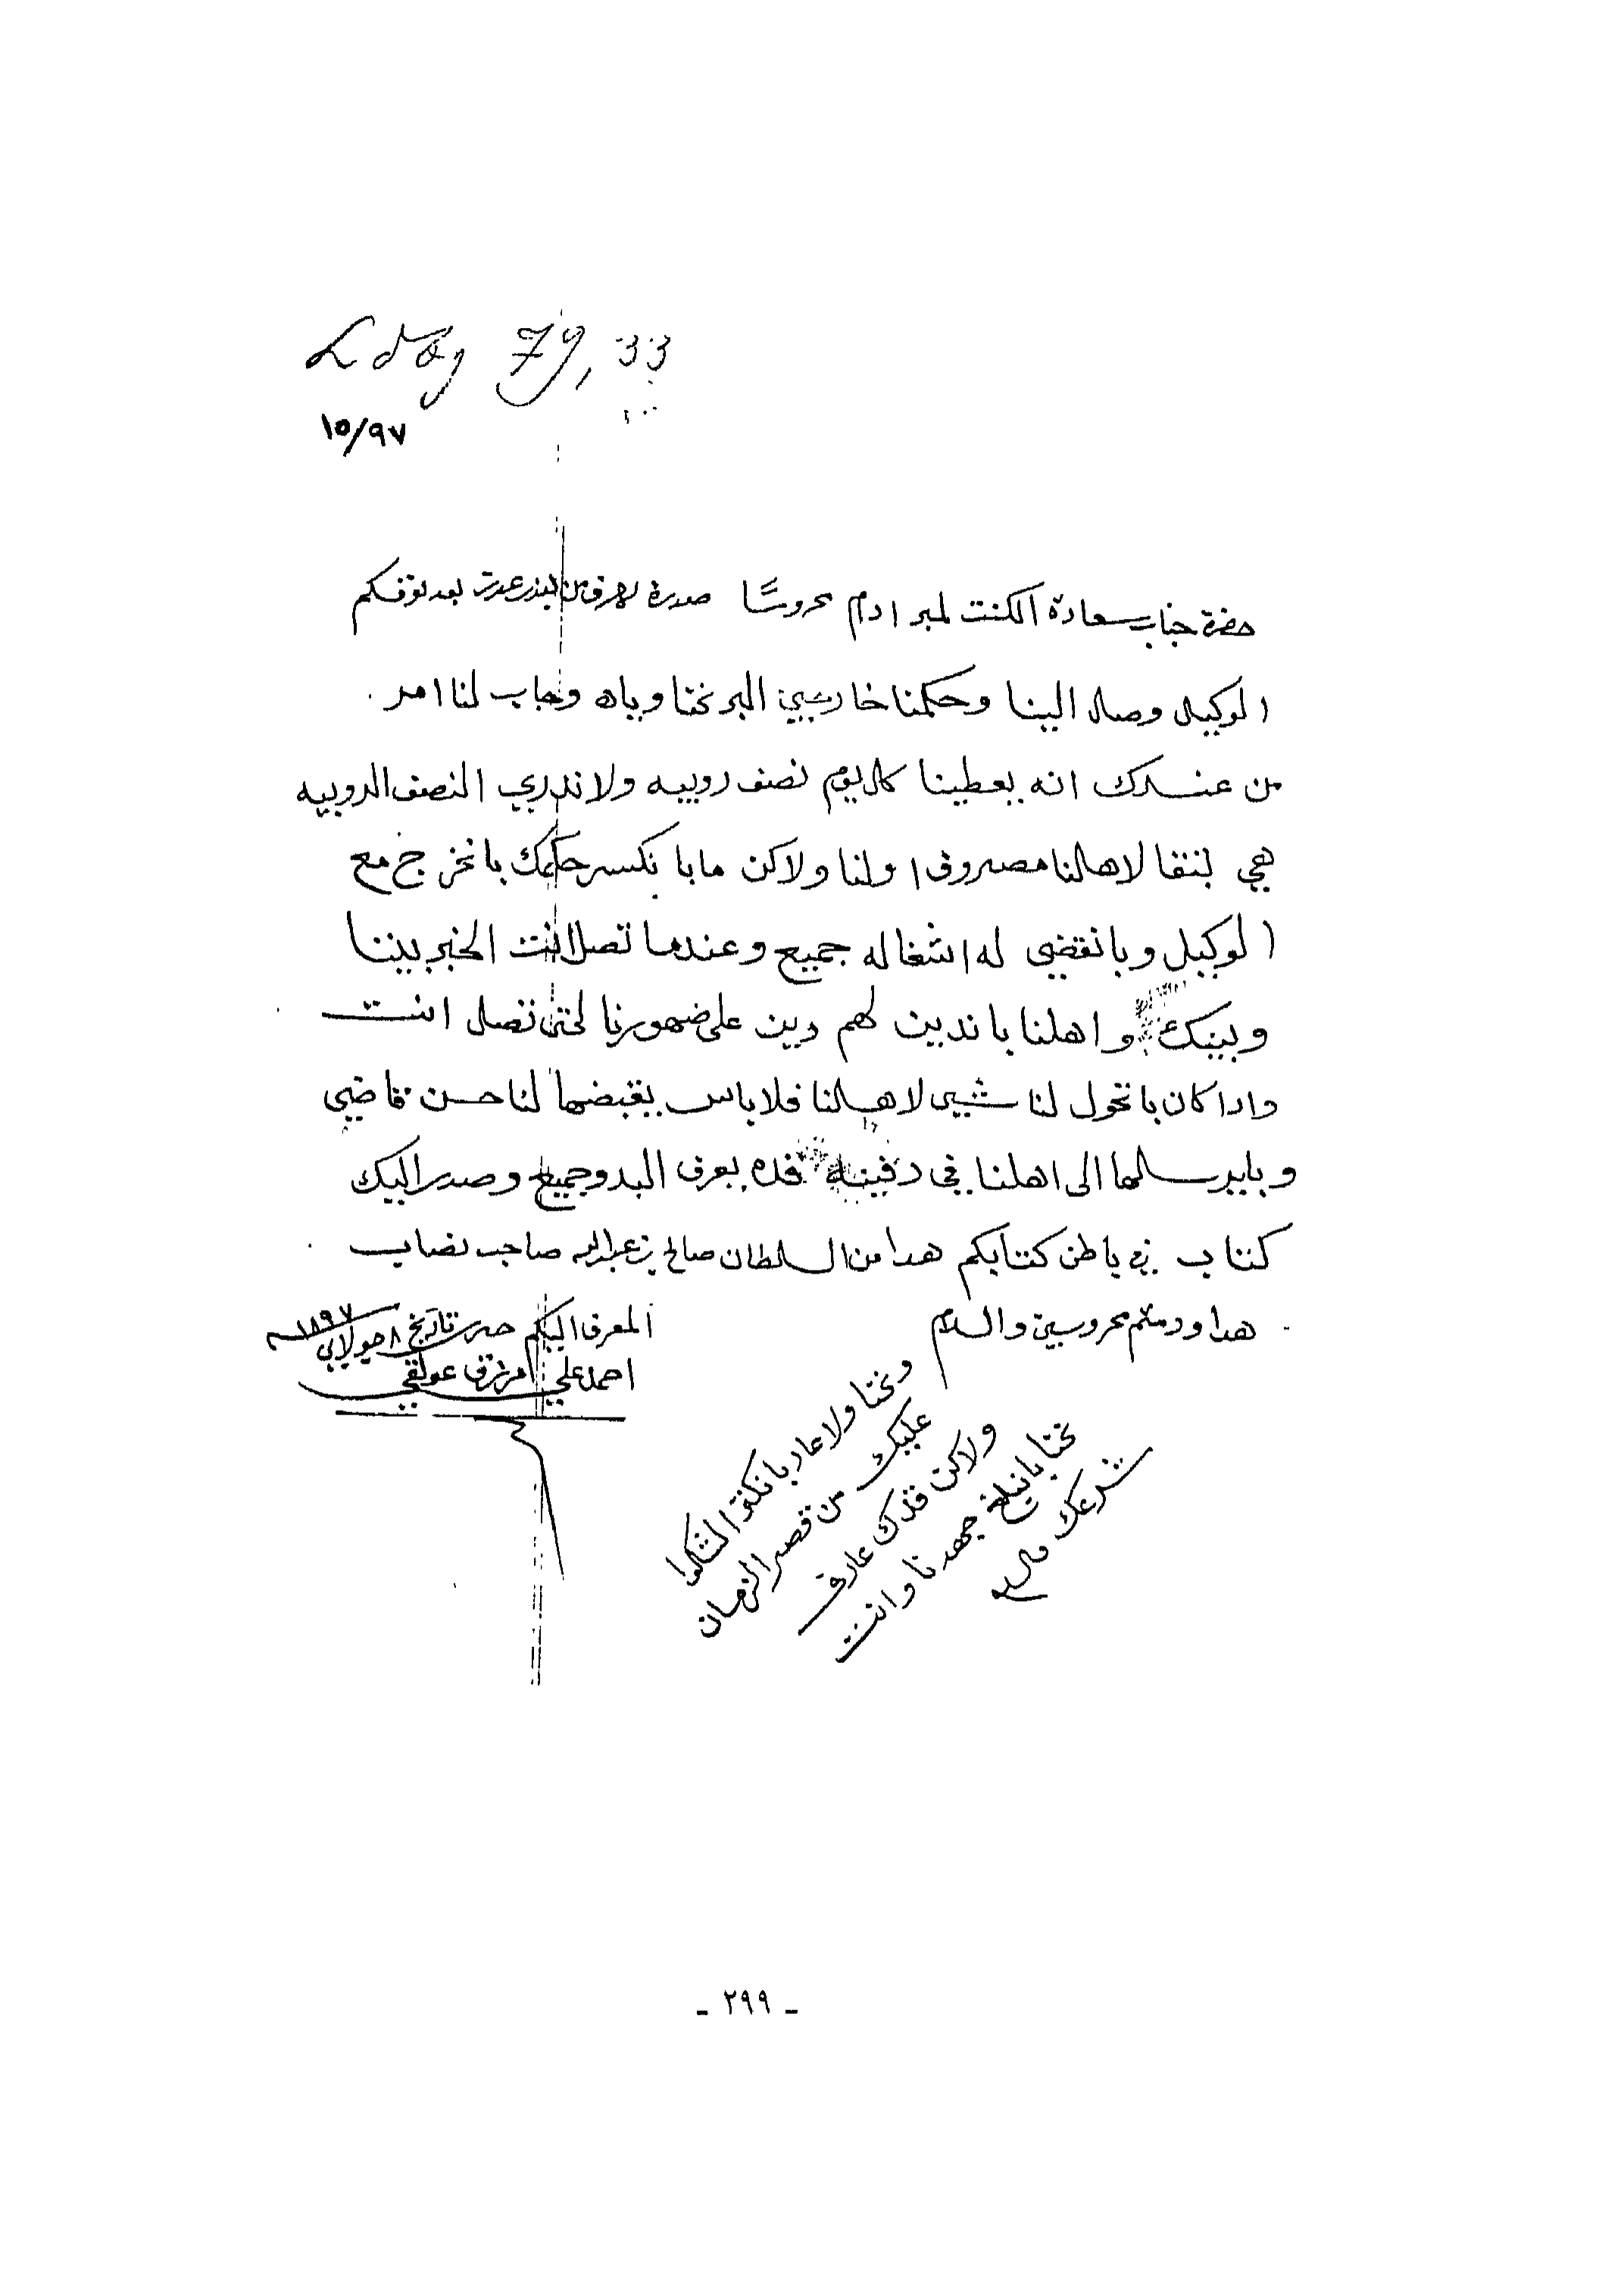 79, 33
١٥/٩٧
حضرة جناب سعادة الكنت لمبرادم محروسًا صدرة الاحرف من البندر عدن بعد توفكم
الوكيل وصل الينا وحكمنا خارجين البر نحنا وياه وجاب لنا امر
من عندك انه يعطينا كل يوم نصف روبيه ولا ندري النصف الروبيه
هي لنفقا لاهالنا مصروف اولنا ولاكن مابا نكسر حكمك بانخرج مع
الوكيل وبانقضي له اشغاله جميع وعندما تصل انت الخبر بيننا
وبينك واهلنا باندين لهم دين على ضهورنا لحتى تصل انت
وادا كان باتحول لنا شيي لاهالنا فلاباس يقبضها لنا حسن قاضي
وبايرسلها الى اهلنا في دفينه قده يعرف البدو جميع وصدر اليك
كتاب في باطن كتابكم هدا من السلطان صالح بن عبدالله صاحب نصاب
هدا ودمتم محروسين والسلام
المعرف اليكم حرر تاريخ ٨ جولاي ١٨٩٧م
احمد علي امرزق عولقي
ونحنا ولا عاد بانكثر الشكوا
عليك من قصر الزمان
ولاكن قدك عارف
نحنا بانبلغ جهدنا وانت
شرعك
- ٢٩٩ -